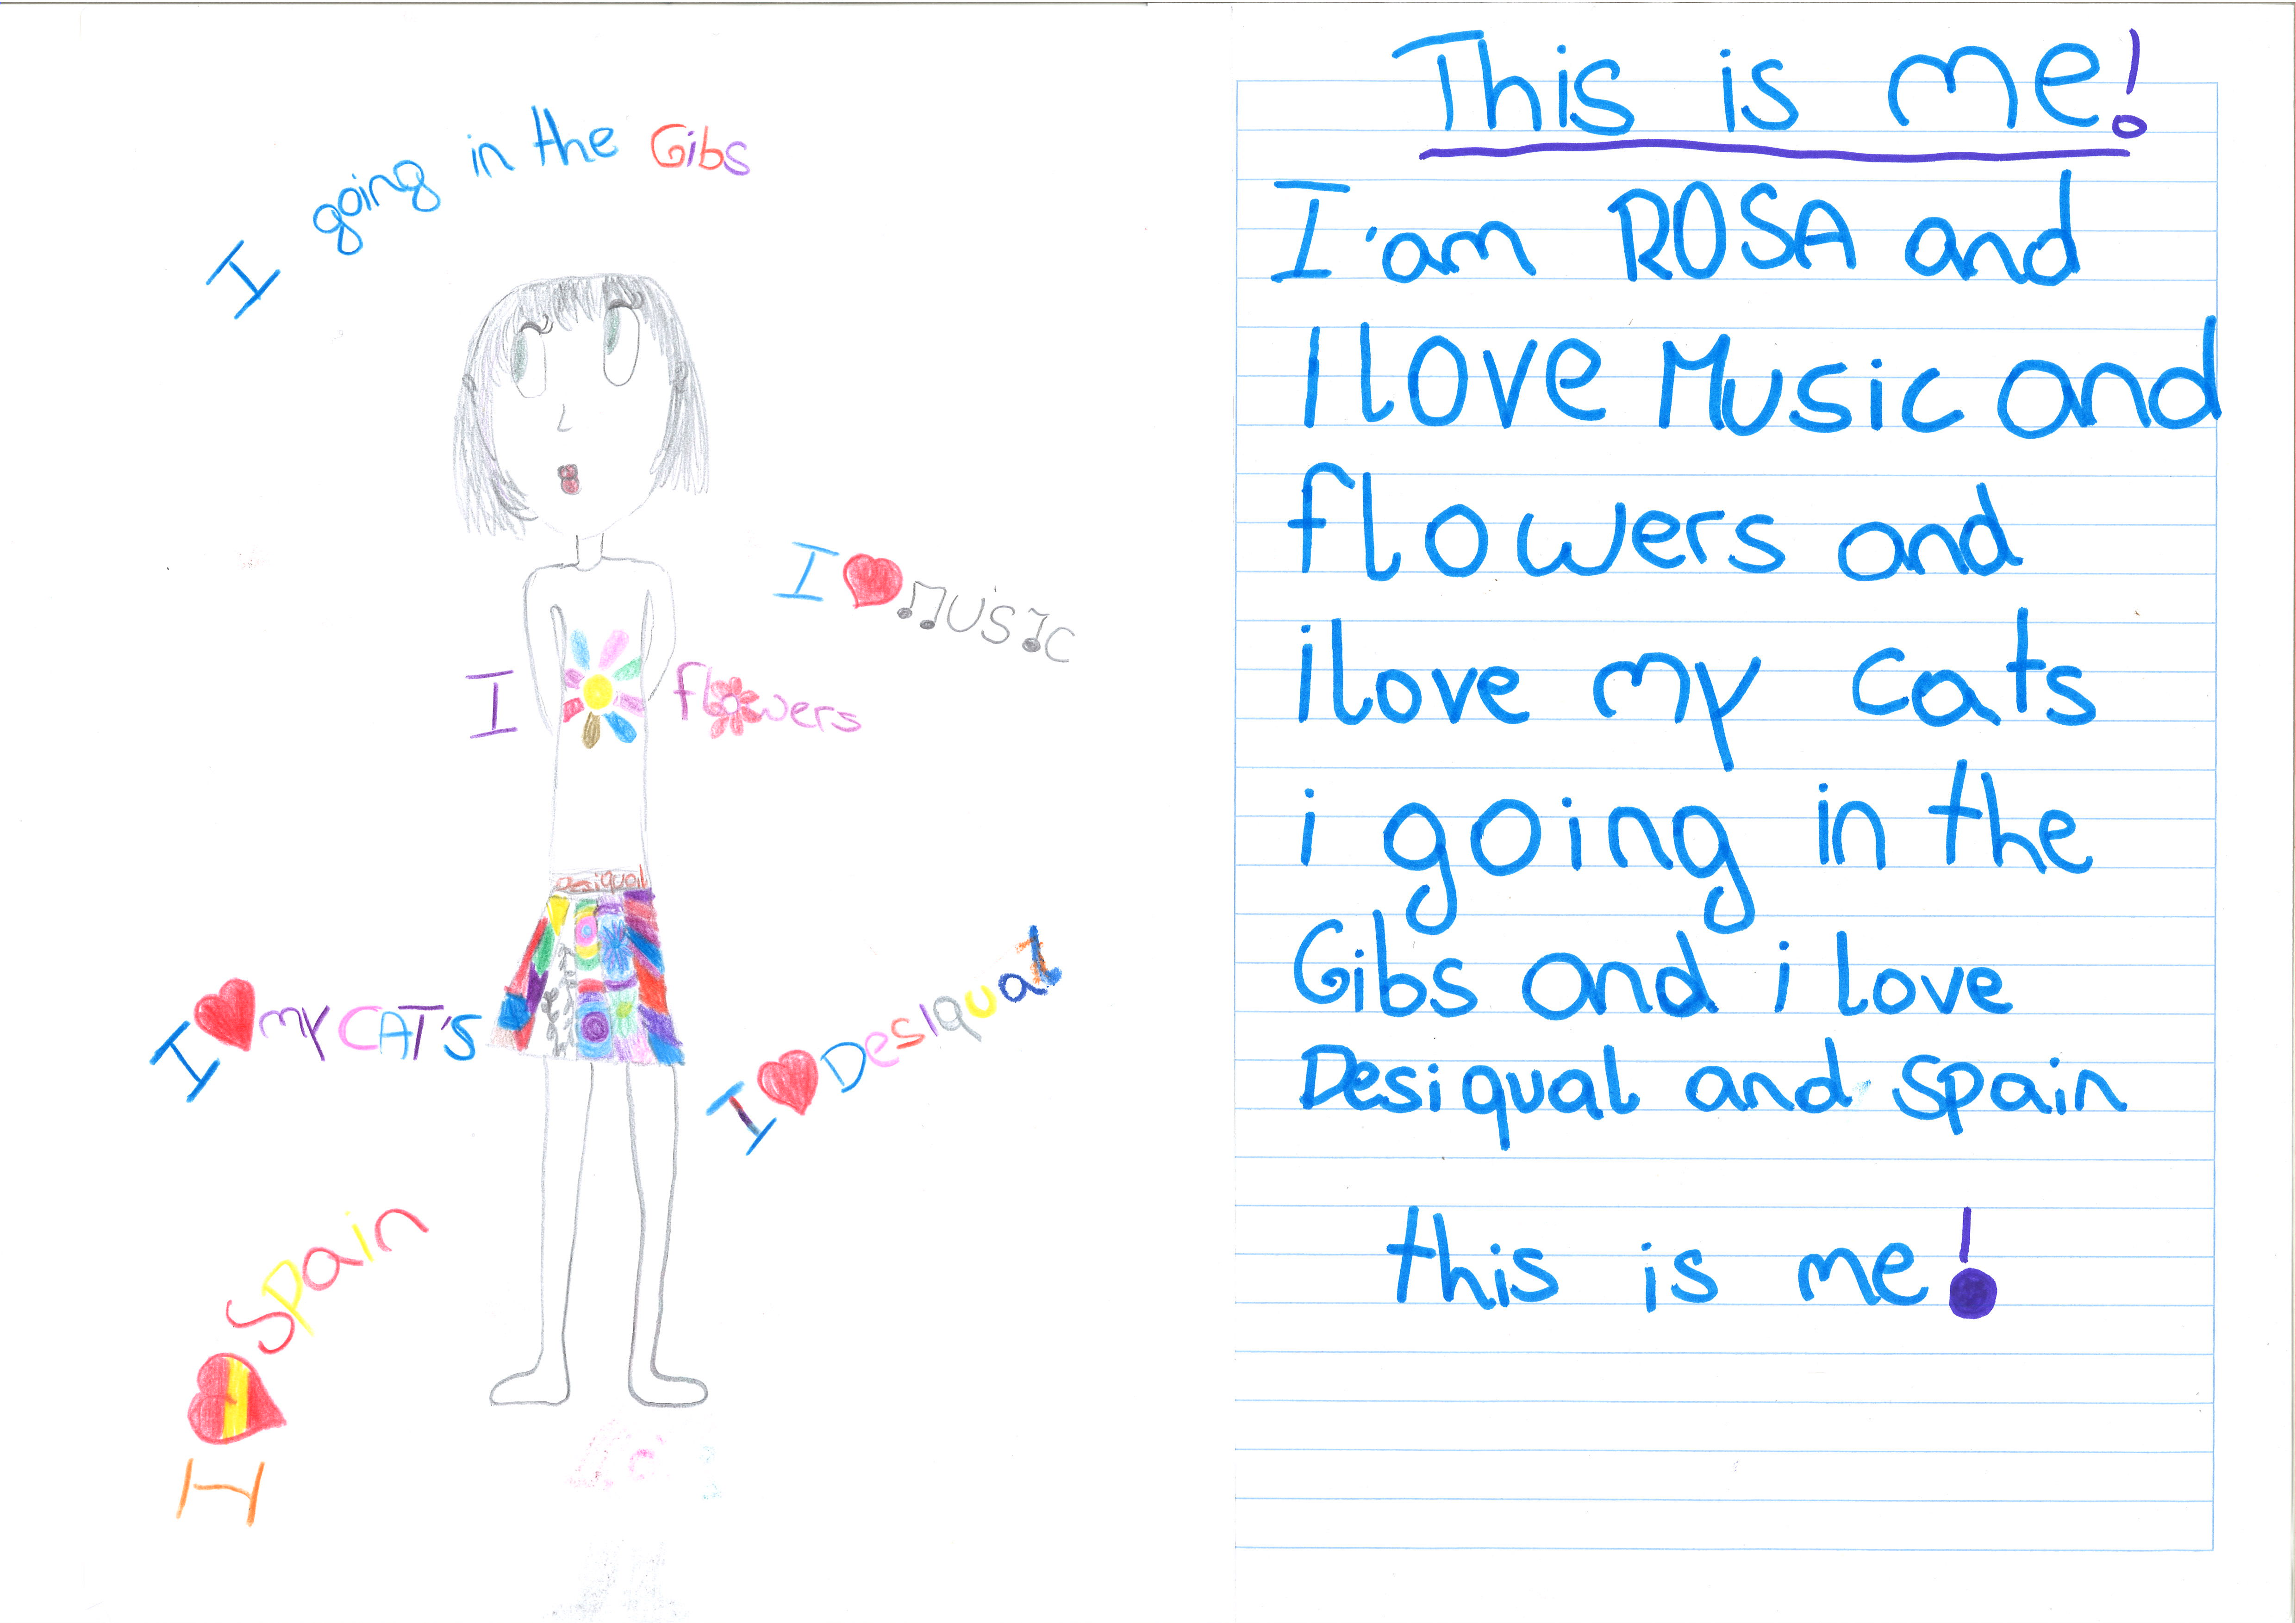 I going in the Gibs
I ❤ MUSIC
I flowers
Desiqual
I ❤ my CAT'S
I ❤ Desiqual
I ❤ Spain
This is me!
I'am ROSA and
I love Music and
flowers and
i love my cats
i going in the
Gibs and i love
Desiqual and Spain
this is me!